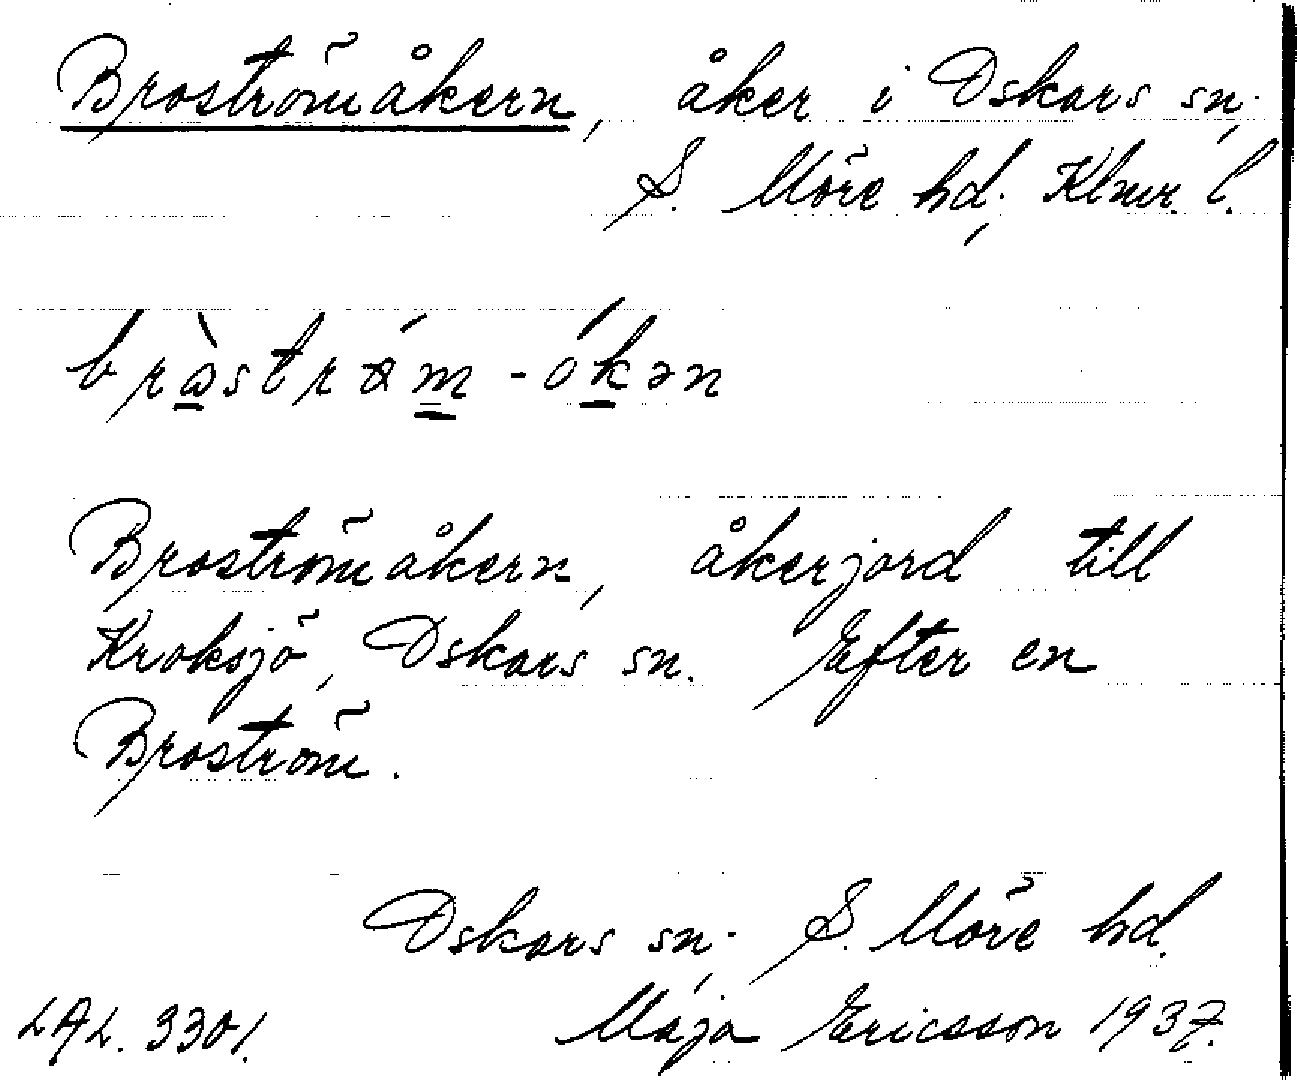 Broströmåkern, åker i Oskars sn.,
S. Möre hd., Klmr. l.
bròström-ókən
Broströmåkern, åkerjord till
Kroksjö, Oskars sn. Efter en
Broström.
Oskars sn., S. Möre hd.
LAL. 3301. Maja Ericsson 1937.